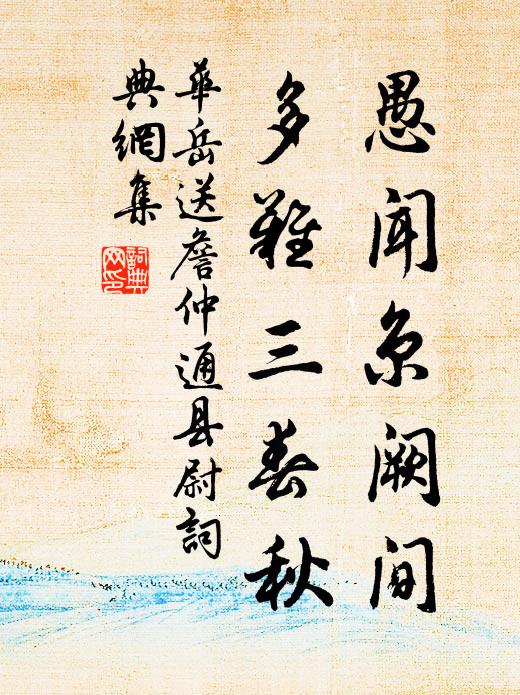 愚闻京阙间
多难三春秋
华岳送詹仲通县尉詞
典網集
詞典网印